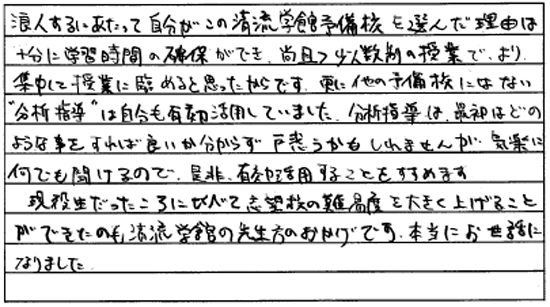 浪人するにあたって自分がこの清流学館予備校を選んだ理由は
十分に学習時間の確保ができ、尚且つ少人数制の授業で、より
集中して授業に臨めると思ったからです。更に他の予備校にはない
"分析指導"は自分も有効活用していました。分析指導は、最初はどの
ような事をすれば良いか分からず戸惑うかもしれませんが、気楽に
何でも聞けるので、是非、有効活用することをすすめます
現役生だったころに比べて志望校の難易度を大きく上げること
ができたのも清流学館の先生方のおかげです。本当にお世話に
なりました。